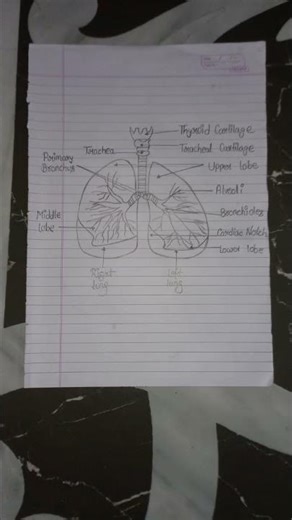 Thyroid Cartilage
Trachea
Tracheal Cartilage
Primary
Bronchus
Upper lobe
Alveoli
Middle
lobe
Bronchioles
Cardiac Notch
Lower lobe
Right
lung
Left
lung